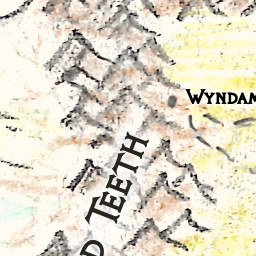 WYNDAM
D TEETH